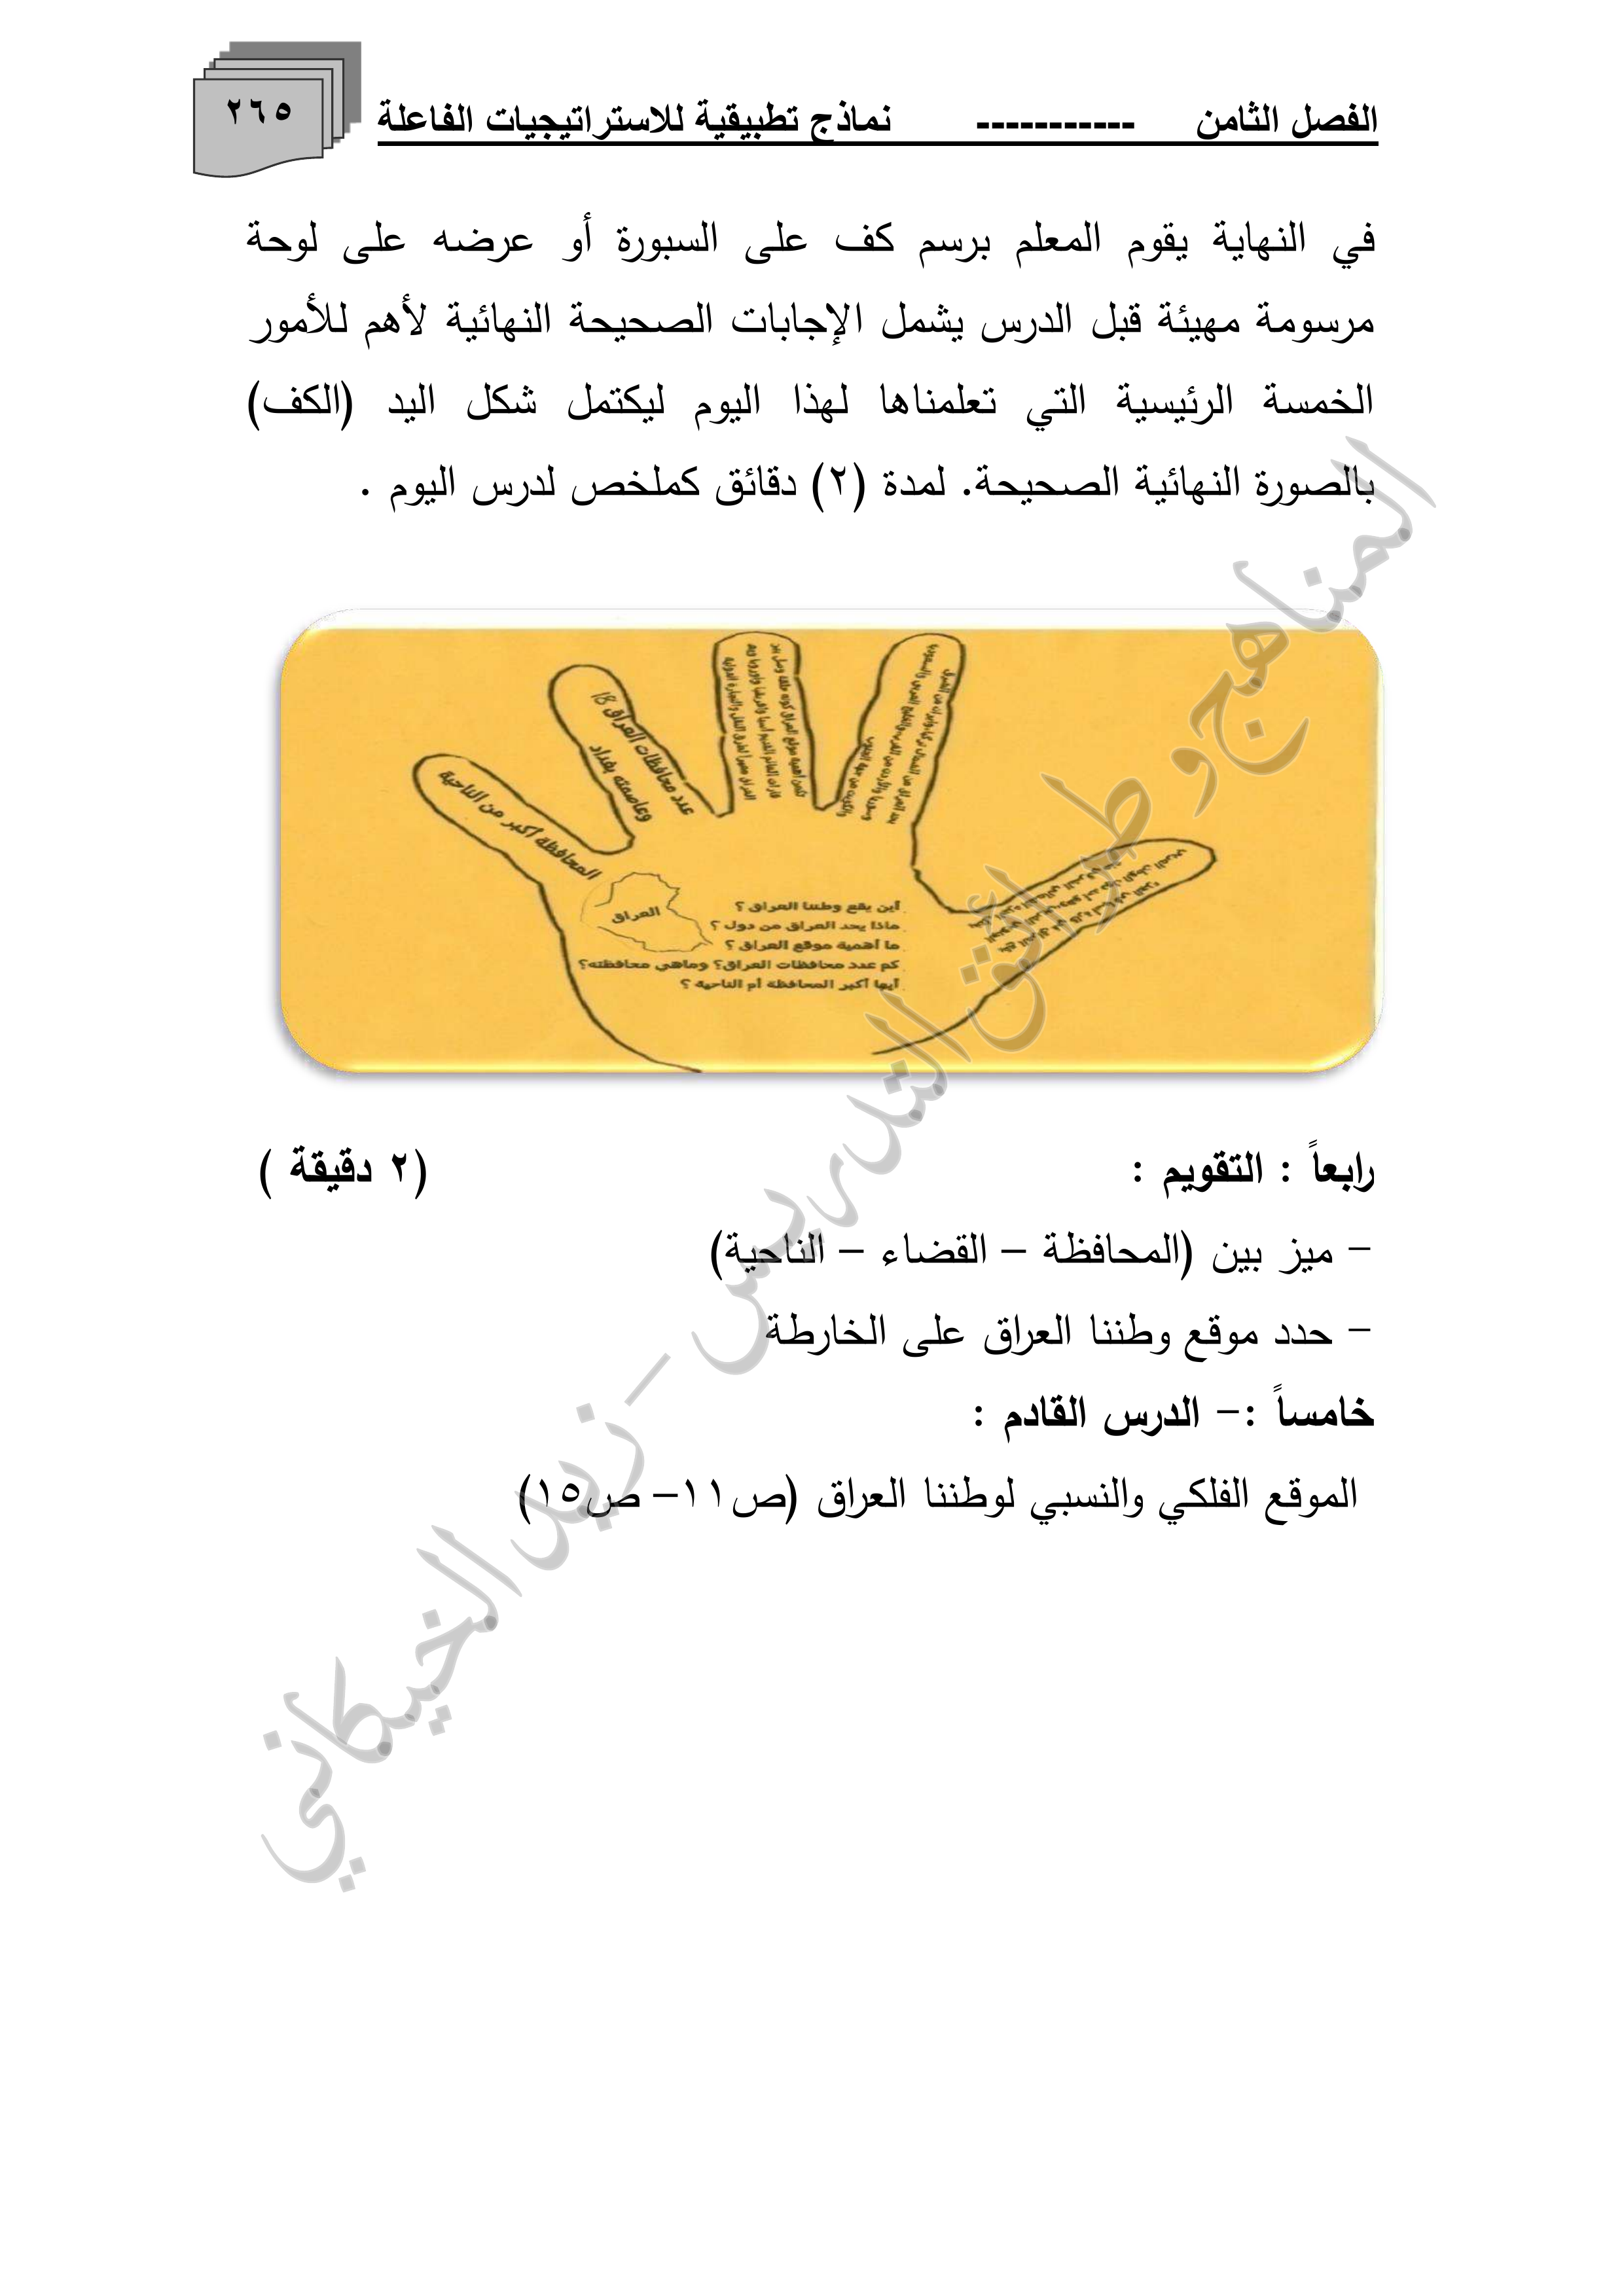 الفصل الثامن ----------- نماذج تطبيقية للاستراتيجيات الفاعلة
٢٦٥
في النهاية يقوم المعلم برسم كف على السبورة أو عرضه على لوحة
مرسومة مهيئة قبل الدرس يشمل الإجابات الصحيحة النهائية لأهم للأمور
الخمسة الرئيسية التي تعلمناها لهذا اليوم ليكتمل شكل اليد (الكف)
بالصورة النهائية الصحيحة. لمدة (٢) دقائق كملخص لدرس اليوم .
تكمن أهمية موقع العراق كونه حلقة وصل بين
قارات العالم القديم آسيا وافريقيا واوروبا ويعد
العراق ممراً لطرق النقل والتجارة الدولية
عدد محافظات العراق 18
وعاصمته بغداد
المحافظة أكبر من الناحية
العراق
أين يقع وطننا العراق ؟
ماذا يحد العراق من دول ؟
ما أهمية موقع العراق ؟
كم عدد محافظات العراق؟ وماهي محافظته؟
أيها أكبر المحافظة أم الناحية ؟
رابعاً : التقويم : (٢ دقيقة )
- ميز بين (المحافظة – القضاء – الناحية)
- حدد موقع وطننا العراق على الخارطة
خامساً :- الدرس القادم :
الموقع الفلكي والنسبي لوطننا العراق (ص١١– ص١٥)
المناهج و طرائق التدريس - زيد الخيكاني